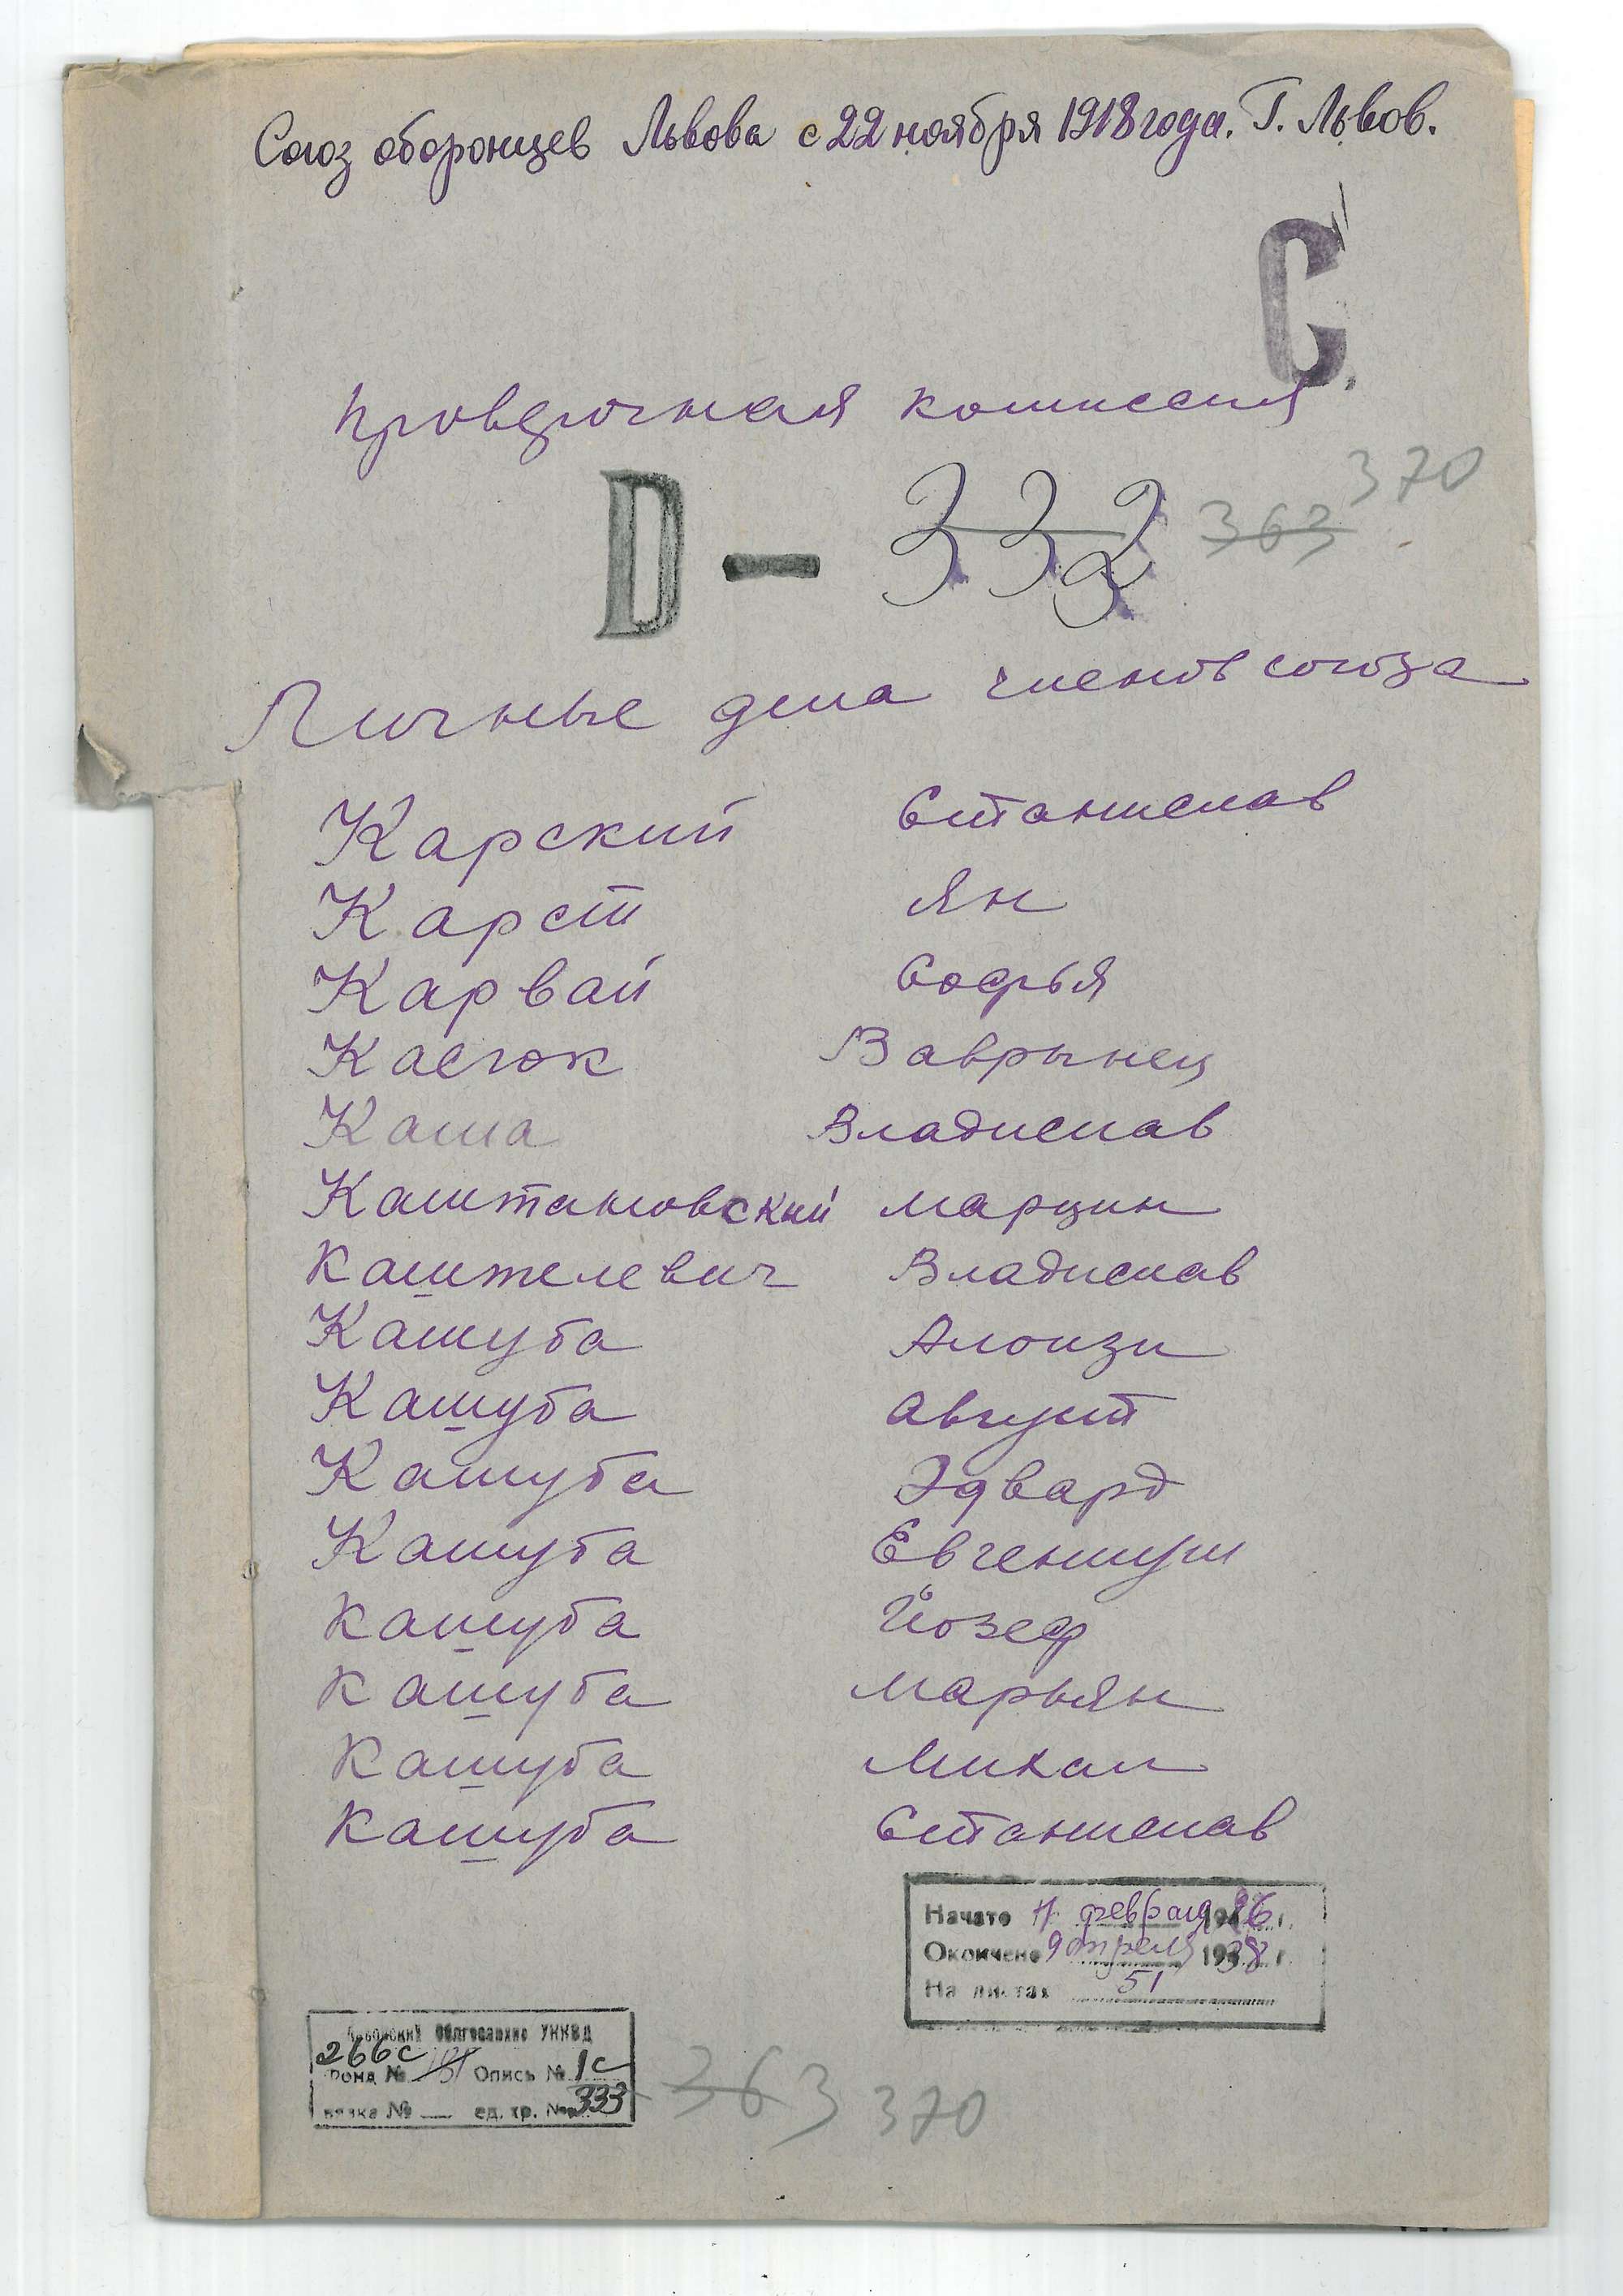 Союз оборонцев Львова с 22 ноября 1918 года. Г. Львов.
С
проверочная комиссия
D — 332 363 370
Личные дела членов союза
Карский Станислав
Карст Ян
Карвай Софья
Касюк Вавρынец
Каша Владислав
Каштановский Марцин
Каштелевич Владислав
Кашуба Алоизи
Кашуба Август
Кашуба Эдвард
Кашуба Евгениуш
Кашуба Йозеф
Кашуба Марьян
Кашуба Михал
Кашуба Станислав
Начато февраля 1926 г.
Окончено 9 апреля 1938 г.
На листах 51
Львовский Облгосархив УНКВД
266с
Фонд № Опись № 1с
вязка № — ед. хр. № 333
363 370